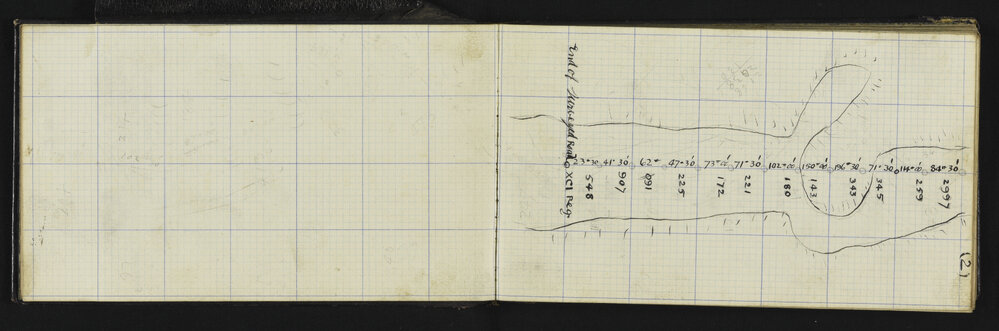 (2)
End of Surveyed Road
XCI Peg
23°30 41°30' 62° 47°30' 73°00' 71°30' 102°00' 150°00' 196°30' 71°30' 114°00' 84°30'
548
907
190
225
172
221
180
143
343
345
259
2997